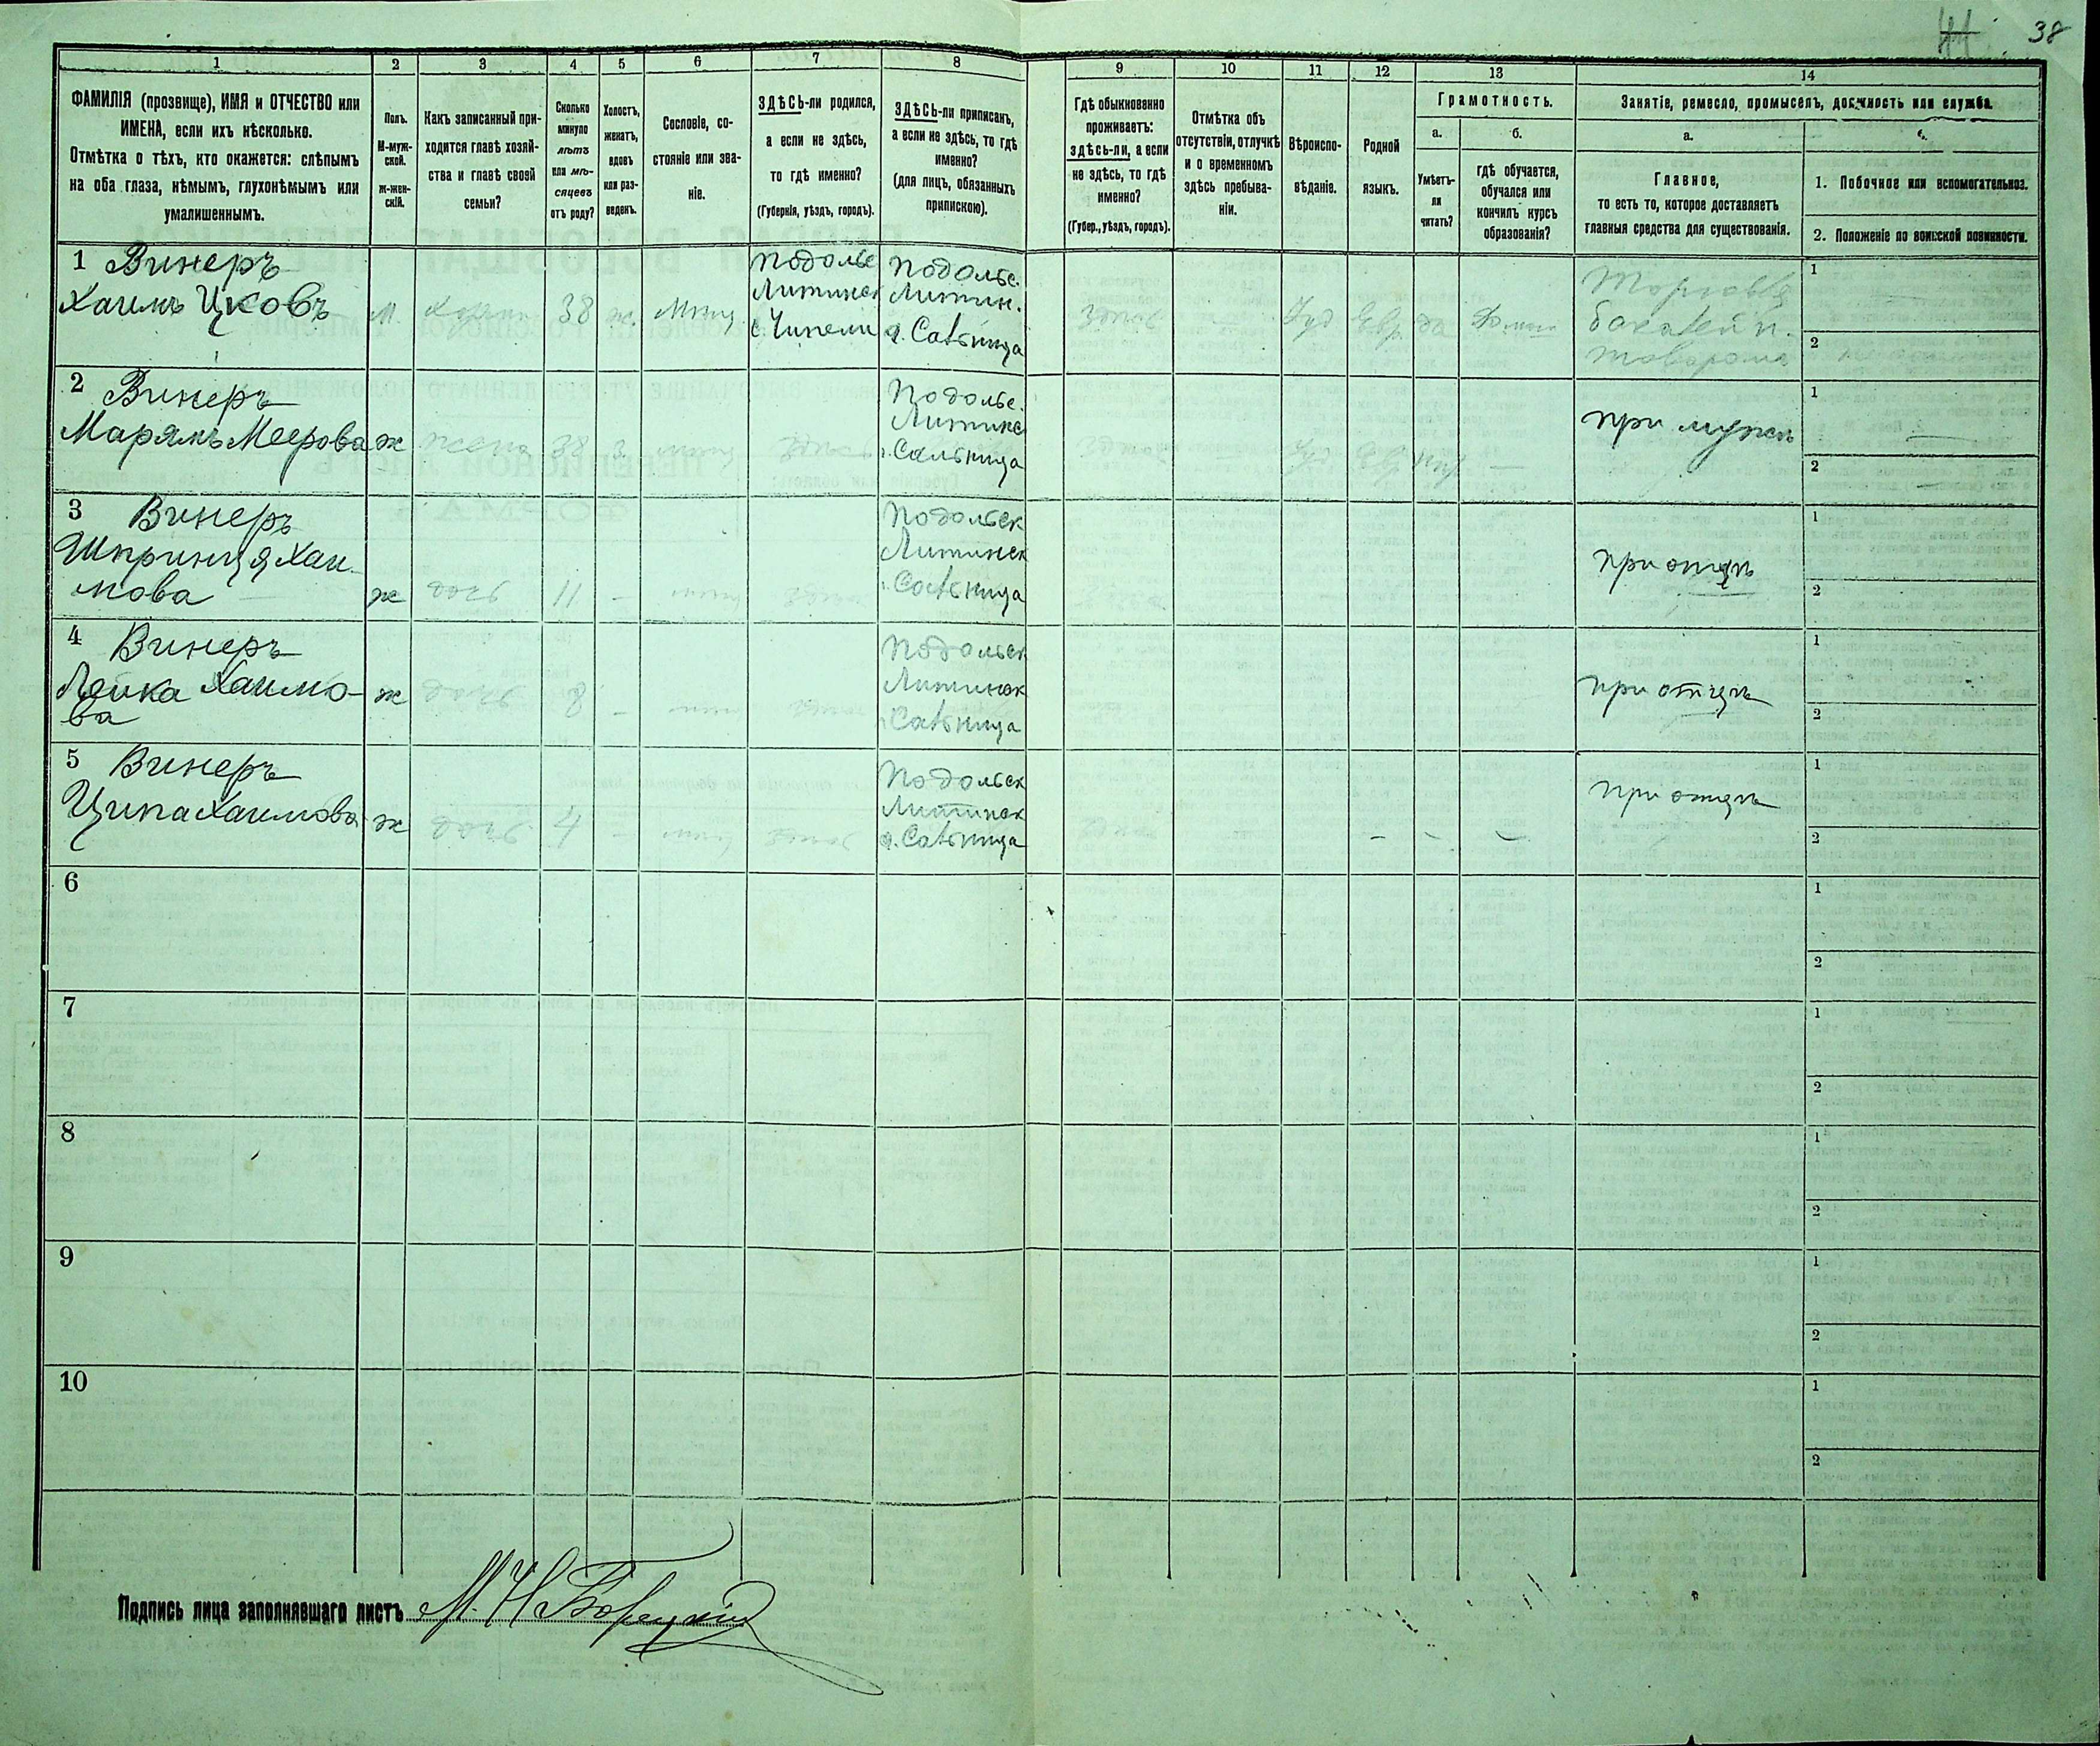 38
1 2 3 4 5 6 7 8 9 10 11 12 13 14
ФАМИЛІЯ (прозвище), ИМЯ и ОТЧЕСТВО или
ИМЕНА, если ихъ нѣсколько.
Отмѣтка о тѣхъ, кто окажется: слѣпымъ
на оба глаза, нѣмымъ, глухонѣмымъ или
умалишеннымъ.
Полъ.
М-муж-
ской.
ж-жен-
скій.
Какъ записанный при-
ходится главѣ хозяй-
ства и главѣ своей
семьи?
Сколько
минуло
лѣтъ
или мѣ-
сяцевъ
отъ роду?
Холостъ,
женатъ,
вдовъ
или раз-
веденъ.
Сословіе, со-
стояніе или зва-
ніе.
ЗДѢСЬ-ли родился,
а если не здѣсь,
то гдѣ именно?
(Губернія, уѣздъ, городъ).
ЗДѢСЬ-ли приписанъ,
а если не здѣсь, то гдѣ
именно?
(для лицъ, обязанныхъ
припискою).
Гдѣ обыкновенно
проживаетъ:
здѣсь-ли, а если
не здѣсь, то гдѣ
именно?
(Губер., уѣздъ, городъ).
Отмѣтка объ
отсутствіи, отлучкѣ
и о временномъ
здѣсь пребыва-
ніи.
Вѣроиспо-
вѣданіе.
Родной
языкъ.
Грамотность.
а.
Умѣетъ-
ли
читать?
б.
гдѣ обучается,
обучался или
кончилъ курсъ
образованія?
Занятіе, ремесло, промыселъ, должность или служба.
а.
Главное,
то есть то, которое доставляетъ
главныя средства для существованія.
1. Побочное или вспомогательное.
2. Положеніе по воинской повинности.
1 Винеръ
Хаимъ Ицковъ
М. 38 ж. Мѣщ.
Подольс
Литинск
с.
Подольс.
Литин.
Сальница
здѣсь — Іуд Евр. да
Торговля
бакалейн.
товаромъ
1
2
2 Винеръ
Марямъ Меерова
ж жена 38 З. мѣщ здѣсь
Подольс.
Литинс
Сальница
здѣсь Іуд Евр —
при мужѣ
1
2
3 Винеръ
Шпринця Хаи-
мова
ж дочь 11 —
Подольск
Литинск
Сальница
при отцѣ
1
2
4 Винеръ
Лейка Хаимо-
ва
ж дочь 8 —
Подольск
Литинск
Сальница
при отцѣ
1
2
5 Винеръ
Ципа Хаимова
ж дочь 4 —
Подольск
Литинск
Сальница
— — —
при отцѣ
1
2
6
1
2
7
1
2
8
1
2
9
1
2
10
1
2
Подпись лица заполнявшаго листъ